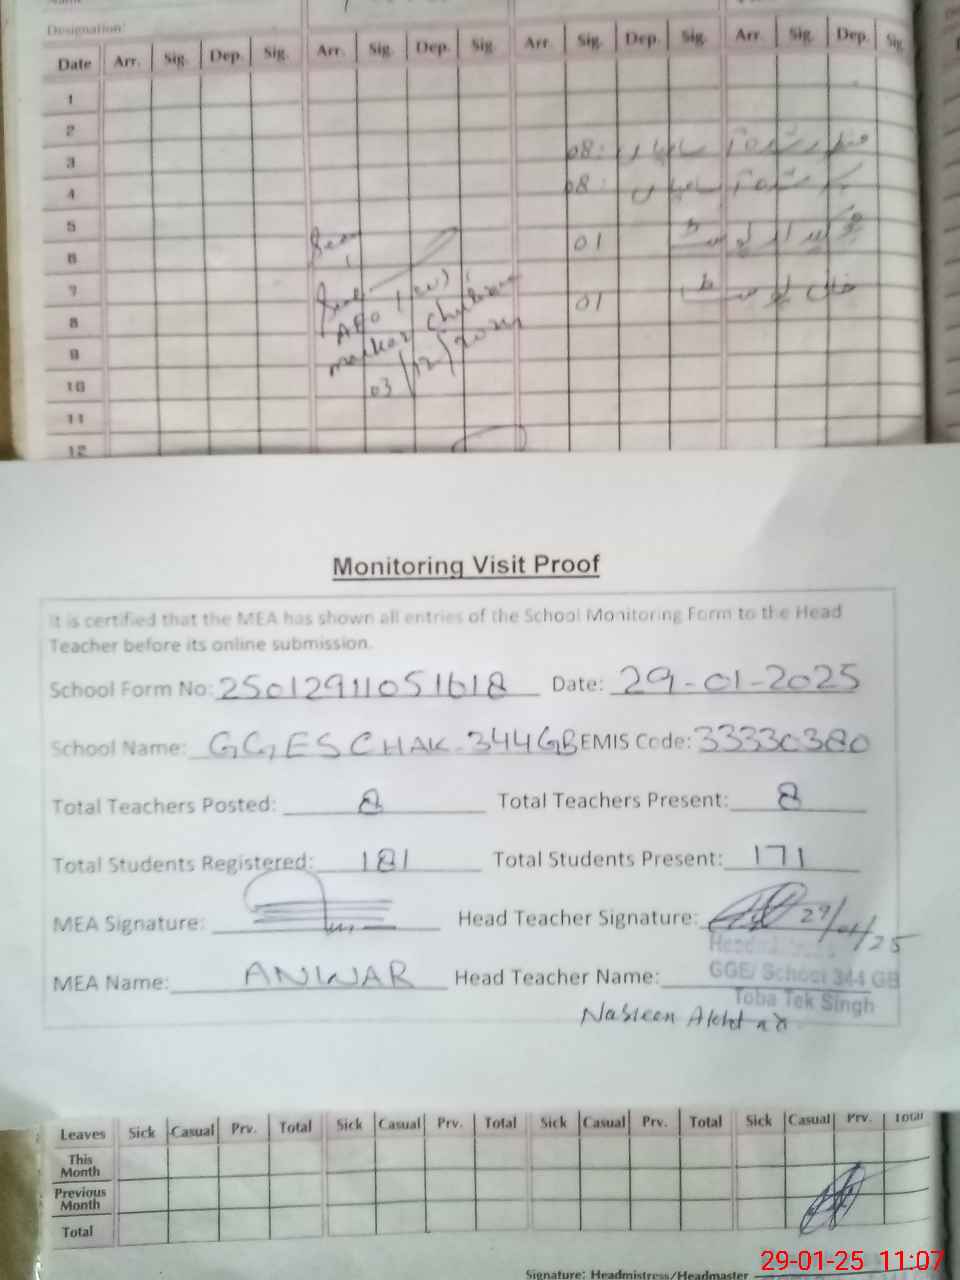 Designation:
Date Arr. Sig. Dep. Sig. Arr. Sig. Dep. Sig. Arr. Sig. Dep. Sig. Arr. Sig. Dep. Sig.
1
2
3 08:
4 08:
5
6 Seen 01
7
8 AEO (W) 01
9
10 03/12/2024
11
12
Monitoring Visit Proof
It is certified that the MEA has shown all entries of the School Monitoring Form to the Head
Teacher before its online submission.
School Form No: 25012911051618 Date: 29-01-2025
School Name: GGES CHAK.344GB EMIS Code: 33330380
Total Teachers Posted: 8 Total Teachers Present: 8
Total Students Registered: 181 Total Students Present: 171
MEA Signature: Head Teacher Signature: 29/01/25
Headmistress
MEA Name: ANWAR Head Teacher Name: GGE/ School 344 GB
Toba Tek Singh
Nasreen Akhtar
Leaves Sick Casual Prv. Total Sick Casual Prv. Total Sick Casual Prv. Total Sick Casual Prv. Total
This
Month
Previous
Month
Total
29-01-25 11:07
Signature: Headmistress/Headmaster